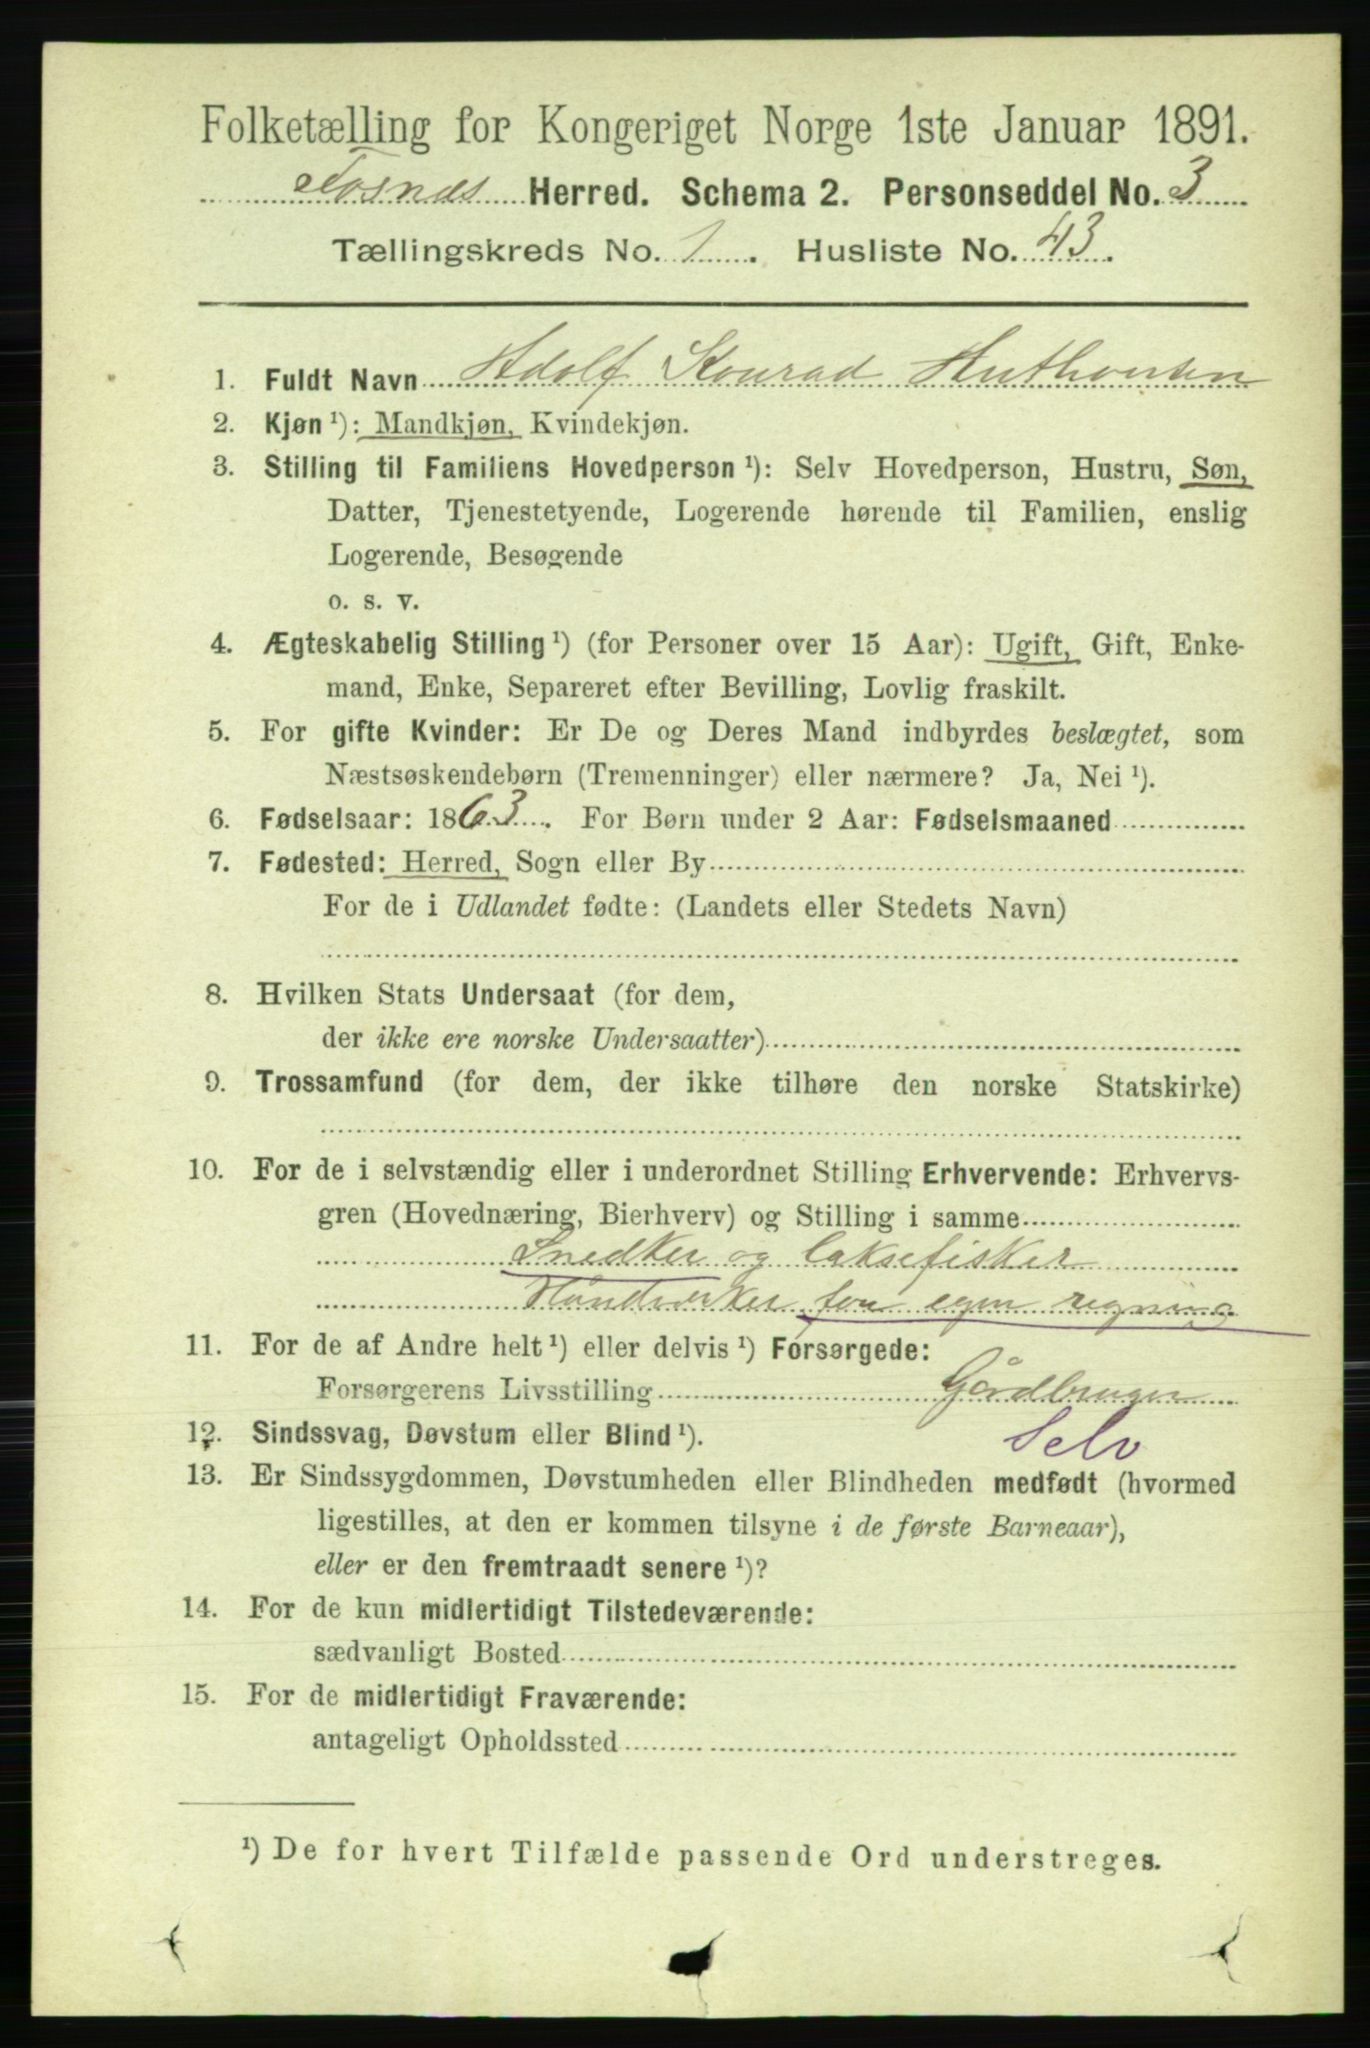 Folketælling for Kongeriget Norge 1ste Januar 1891.
Fosnæs Herred. Schema 2. Personseddel No. 3
Tællingskreds No. 1. Husliste No. 43.
1. Fuldt Navn Adolf Konrad
2. Kjøn ¹): Mandkjøn, Kvindekjøn.
3. Stilling til Familiens Hovedperson ¹): Selv Hovedperson, Hustru, Søn,
Datter, Tjenestetyende, Logerende hørende til Familien, enslig
Logerende, Besøgende
o. s. v.
4. Ægteskabelig Stilling ¹) (for Personer over 15 Aar): Ugift, Gift, Enke-
mand, Enke, Separeret efter Bevilling, Lovlig fraskilt.
5. For gifte Kvinder: Er De og Deres Mand indbyrdes beslægtet, som
Næstsøskendebørn (Tremenninger) eller nærmere? Ja, Nei ¹).
6. Fødselsaar: 1863. For Børn under 2 Aar: Fødselsmaaned
7. Fødested: Herred, Sogn eller By
For de i Udlandet fødte: (Landets eller Stedets Navn)
8. Hvilken Stats Undersaat (for dem,
der ikke ere norske Undersaatter)
9. Trossamfund (for dem, der ikke tilhøre den norske Statskirke)
10. For de i selvstændig eller i underordnet Stilling Erhvervende: Erhvervs-
gren (Hovednæring, Bierhverv) og Stilling i samme
Snedker og laksefisker
Håndverker for egen regning
11. For de af Andre helt ¹) eller delvis ¹) Forsørgede:
Forsørgerens Livsstilling Gårdbruger
12. Sindssvag, Døvstum eller Blind ¹). Selv
13. Er Sindssygdommen, Døvstumheden eller Blindheden medfødt (hvormed
ligestilles, at den er kommen tilsyne i de første Barneaar),
eller er den fremtraadt senere ¹)?
14. For de kun midlertidigt Tilstedeværende:
sædvanligt Bosted
15. For de midlertidigt Fraværende:
antageligt Opholdssted
¹) De for hvert Tilfælde passende Ord understreges.